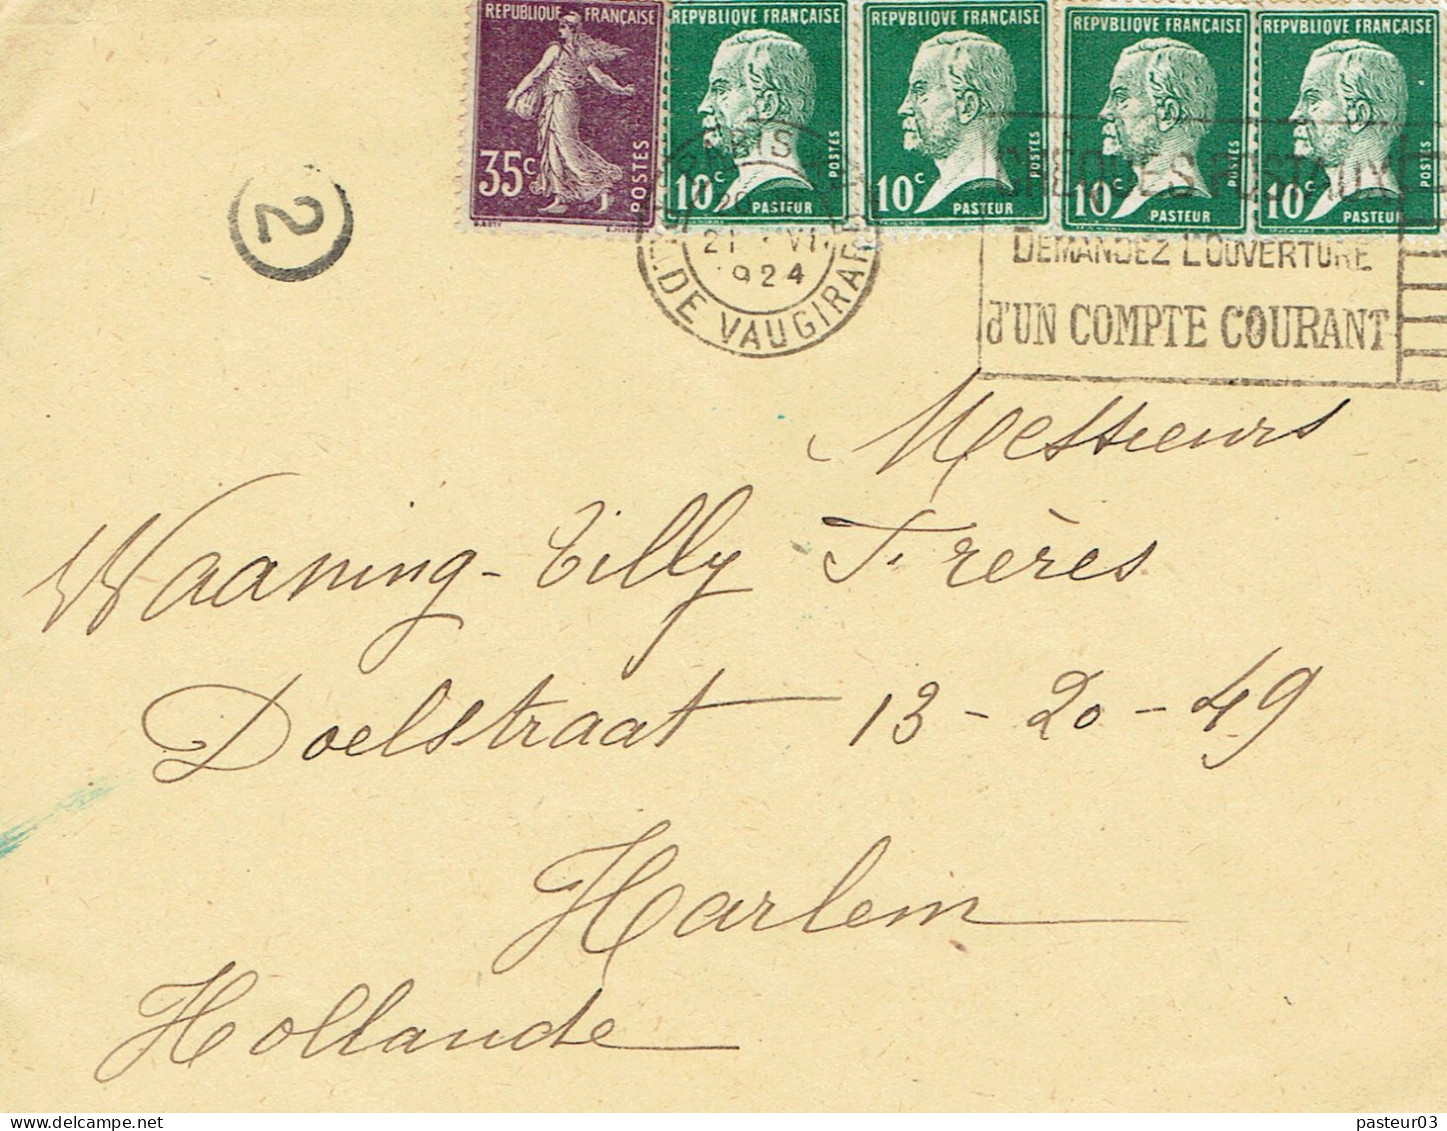 REPUBLIQUE FRANÇAISE
35c
POSTES
REPVBLIQVE FRANÇAISE
10c
POSTES
PASTEUR
REPVBLIQVE FRANÇAISE
10c
POSTES
PASTEUR
REPVBLIQVE FRANÇAISE
10c
POSTES
PASTEUR
REPVBLIQVE FRANÇAISE
10c
POSTES
PASTEUR
PARIS
21 VI
1924
R. DE VAUGIRARD
CHÈQUES POSTAUX
DEMANDEZ L'OUVERTURE
d'UN COMPTE COURANT
2
Messieurs
Waaning-Tilly Frères
Doelstraat 13-20-49
Harlem
Hollande
pasteur03